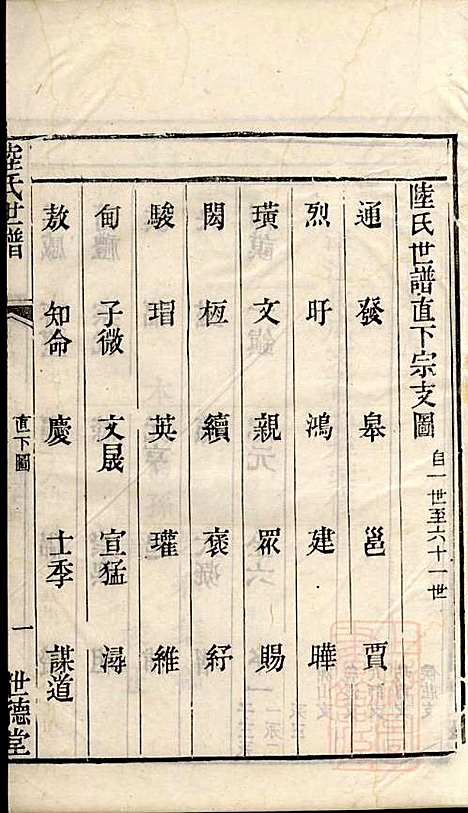 陸氏世譜直下宗支圖 自一世至六十一世
通 發 皋 邕 賈
烈 盱 鴻 建 曄
璜 文 親 眾 賜
閎 恆 續 褒 紆
駿 瑁 英 瓘 維
甸 子微 文晟 宣猛 潯
敖 知命 慶 士季 謀道
陸氏世譜 直下圖 一 世德堂